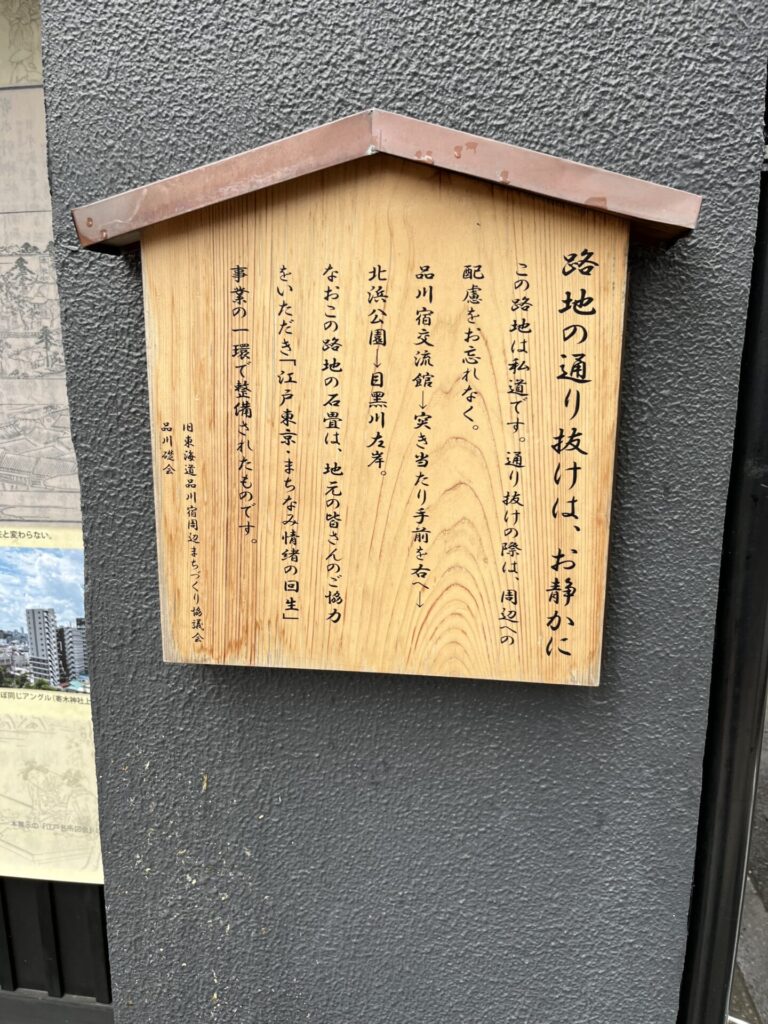 路地の通り抜けは、お静かに
この路地は私道です。通り抜けの際は、周辺への
配慮をお忘れなく。
品川宿交流館→突き当たり手前を右へ→
北浜公園→目黒川左岸。
なおこの路地の石畳は、地元の皆さんのご協力
をいただき「江戸東京・まちなみ情緒の回生」
事業の一環で整備されたものです。
旧東海道品川宿周辺まちづくり協議会
品川礎会
と変わらない。
ぼ同じアングル(寄木神社上
本展示の『江戸名所図会』